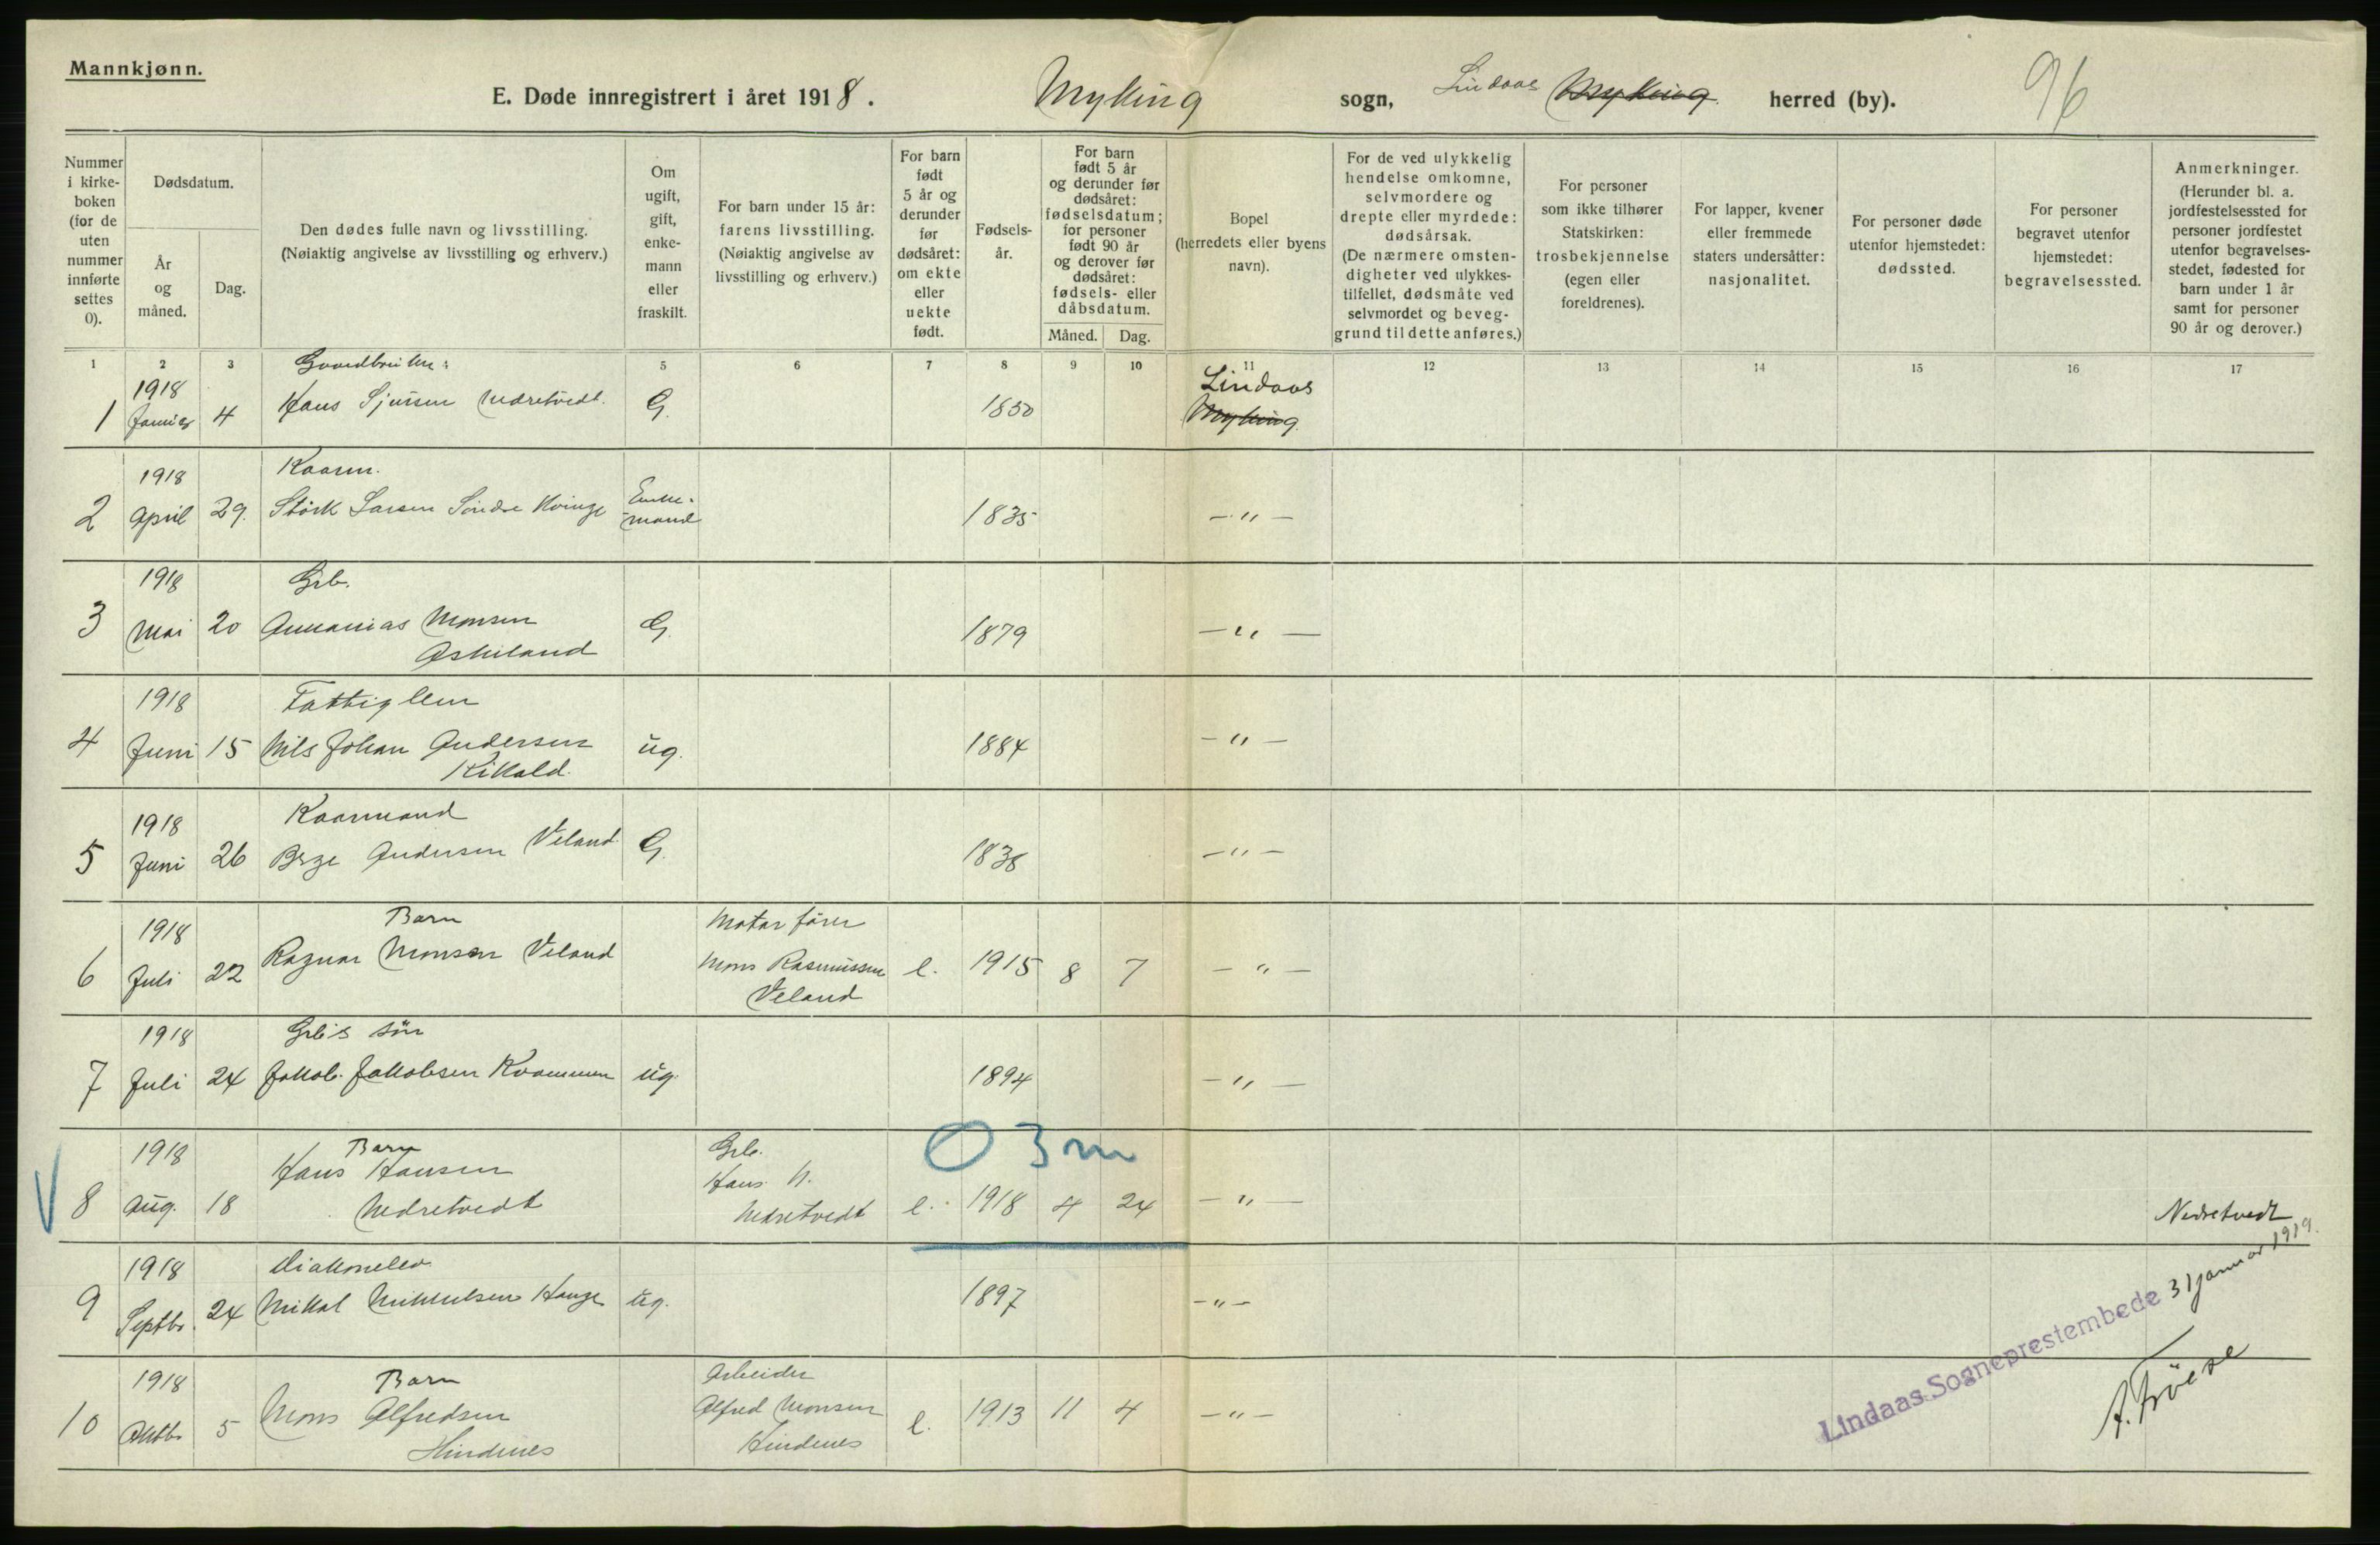 Mannkjønn.
E. Døde innregistrert i året 1918. Myking sogn, Lindaas Myking herred (by). 96
Nummer i kirke-boken (for de uten nummer innførte settes 0).
Dødsdatum.
År og måned.
Dag.
Den dødes fulle navn og livsstilling.
(Nøiaktig angivelse av livsstilling og erhverv.)
Om ugift, gift, enke-mann eller fraskilt.
For barn under 15 år: farens livsstilling.
(Nøiaktig angivelse av livsstilling og erhverv.)
For barn født 5 år og derunder før dødsåret: om ekte eller uekte født.
Fødsels-år.
For barn født 5 år og derunder før dødsåret: fødselsdatum; for personer født 90 år og derover før dødsåret: fødsels- eller dåbsdatum.
Måned. Dag.
Bopel (herredets eller byens navn).
For de ved ulykkelig hendelse omkomne, selvmordere og drepte eller myrdede: dødsårsak.
(De nærmere omsten-digheter ved ulykkes-tilfellet, dødsmåte ved selvmordet og beveg-grund til dette anføres.)
For personer som ikke tilhører Statskirken: trosbekjennelse (egen eller foreldrenes).
For lapper, kvener eller fremmede staters undersåtter: nasjonalitet.
For personer døde utenfor hjemstedet: dødssted.
For personer begravet utenfor hjemstedet: begravelsessted.
Anmerkninger.
(Herunder bl. a. jordfestelsessted for personer jordfestet utenfor begravelses-stedet, fødested for barn under 1 år samt for personer 90 år og derover.)
1 2 3 5 6 7 8 9 10 11 12 13 14 15 16 17
1918 Gaardbruker Lindaas
1 Januar 4 Hans Sjursen Nedretvedt. G. 1850 Myking
1918 Kaarm. Enke-
2 April 29. Störk Larsen Söndre Kvinge mand 1835 -"-
1918 Grb.
3 Mai 20 Annanias Monsen G. 1879 -"-
Askeland
1918 Fattiglem
4 Juni 15 Nils Johan Andersen ug. 1884 -"-
Kikald.
1918 Kaarmand
5 Juni 26 Brge Andersen Veland G. 1838 -"-
1918 Barn Motorfører
6 Juli 22 Ragnar Monsen Veland Mons Rasmussen e. 1915 8 7 -"-
Veland
1918 Grb's sön
7 Juli 24 Jakob Jakobsen Kvammen ug. 1894 -"-
0 3 m
1918 Barn Grb.
V 8 Aug. 18 Hans Hansen Hans N. e. 1918 4 24 -"-
Nedretvedt Nedretvedt Nedretvedt
1918 Diakonelev.
9 Septbr. 24 Mikal Mikkelsen Hauge ug. 1897 -"-
1918 Barn Arbeider
10 Oktbr 5 Mons Alfredsen Alfred Monsen e. 1913 11 4 -"-
Hindenes Hindenes
Lindaas Sogneprestembede 31 januar 1919.
A. Fröese